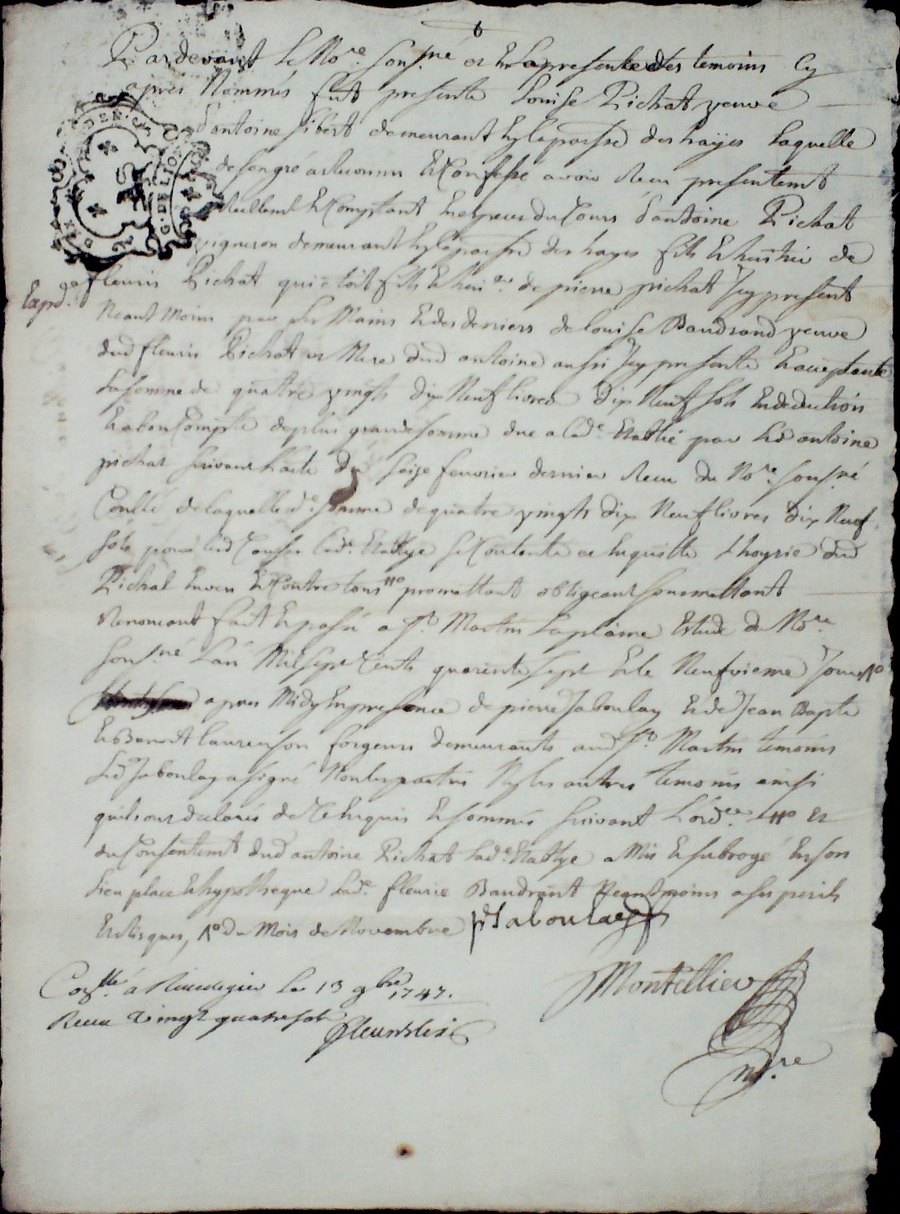 Pardevant Le No.re Sousné et En la presence des temoins Cy
apres Nommés fut presente Louise Pichat veuve
d'antoine Sibert demeurant en la paroisse des hayes Laquelle
de son gré a reconnu Et Confesse avoir Receu presentemt
Reellemt Et Comptant En especes du Cours d'antoine Pichat
vigneron demeurant en la paroisse des hayes fils Et heritier de
fleurie Pichat qui etoit fils Et heri.er de pierre pichat Icy present
Expd.
Neantmoins par les Mains Et des deniers de Louise Baudrand veuve
dud fleurie Pichat et Mere dud antoine aussi Icy presente Et acceptante
La somme de quatre vingts dix Neuf livres dix Neuf sols En deduction
Et a bon Compte de plus grande somme due a Lad.e par Led antoine
pichat Suivant L'acte du seize fevrier dernier Receu du No.re Sousné
Conllé de laquelle d.e somme de quatre vingts dix Neuf livres dix Neuf
sols Lad.e se Contente et En quitte L'hoyrie dud
Pichat Envers Et Contre tous promettant obligeant soumettant
Renoncant fait Et passé a St Martin La plaine Etude du No.re
Sousné L'an Mil sept Cents quarente sept Et Le Neufvieme Jour
apres Midy En presence de pierre Jaboulay Et de Jean Bapte
Et Benoit Laurenson forgeurs demeurants aud St Martin temoins
Led Jaboulay a signé Non les parties Ny les autres temoins ainsi
qu'ils ont declarés de Ce Enquis Et sommés Suivant L'ord.ce Et
du Consentemt dud antoine Pichat Lad.e a Mis Et subrogé En son
Lieu place Et hypotheque Lad. fleurie Baudrant Neantmoins a ses perils
Et Risques, du Mois de Novembre pr Jaboulay
Conllé à Rivedegier Le 13 9bre 1747.
Receu vingt quatre sols
Montellier
n.re